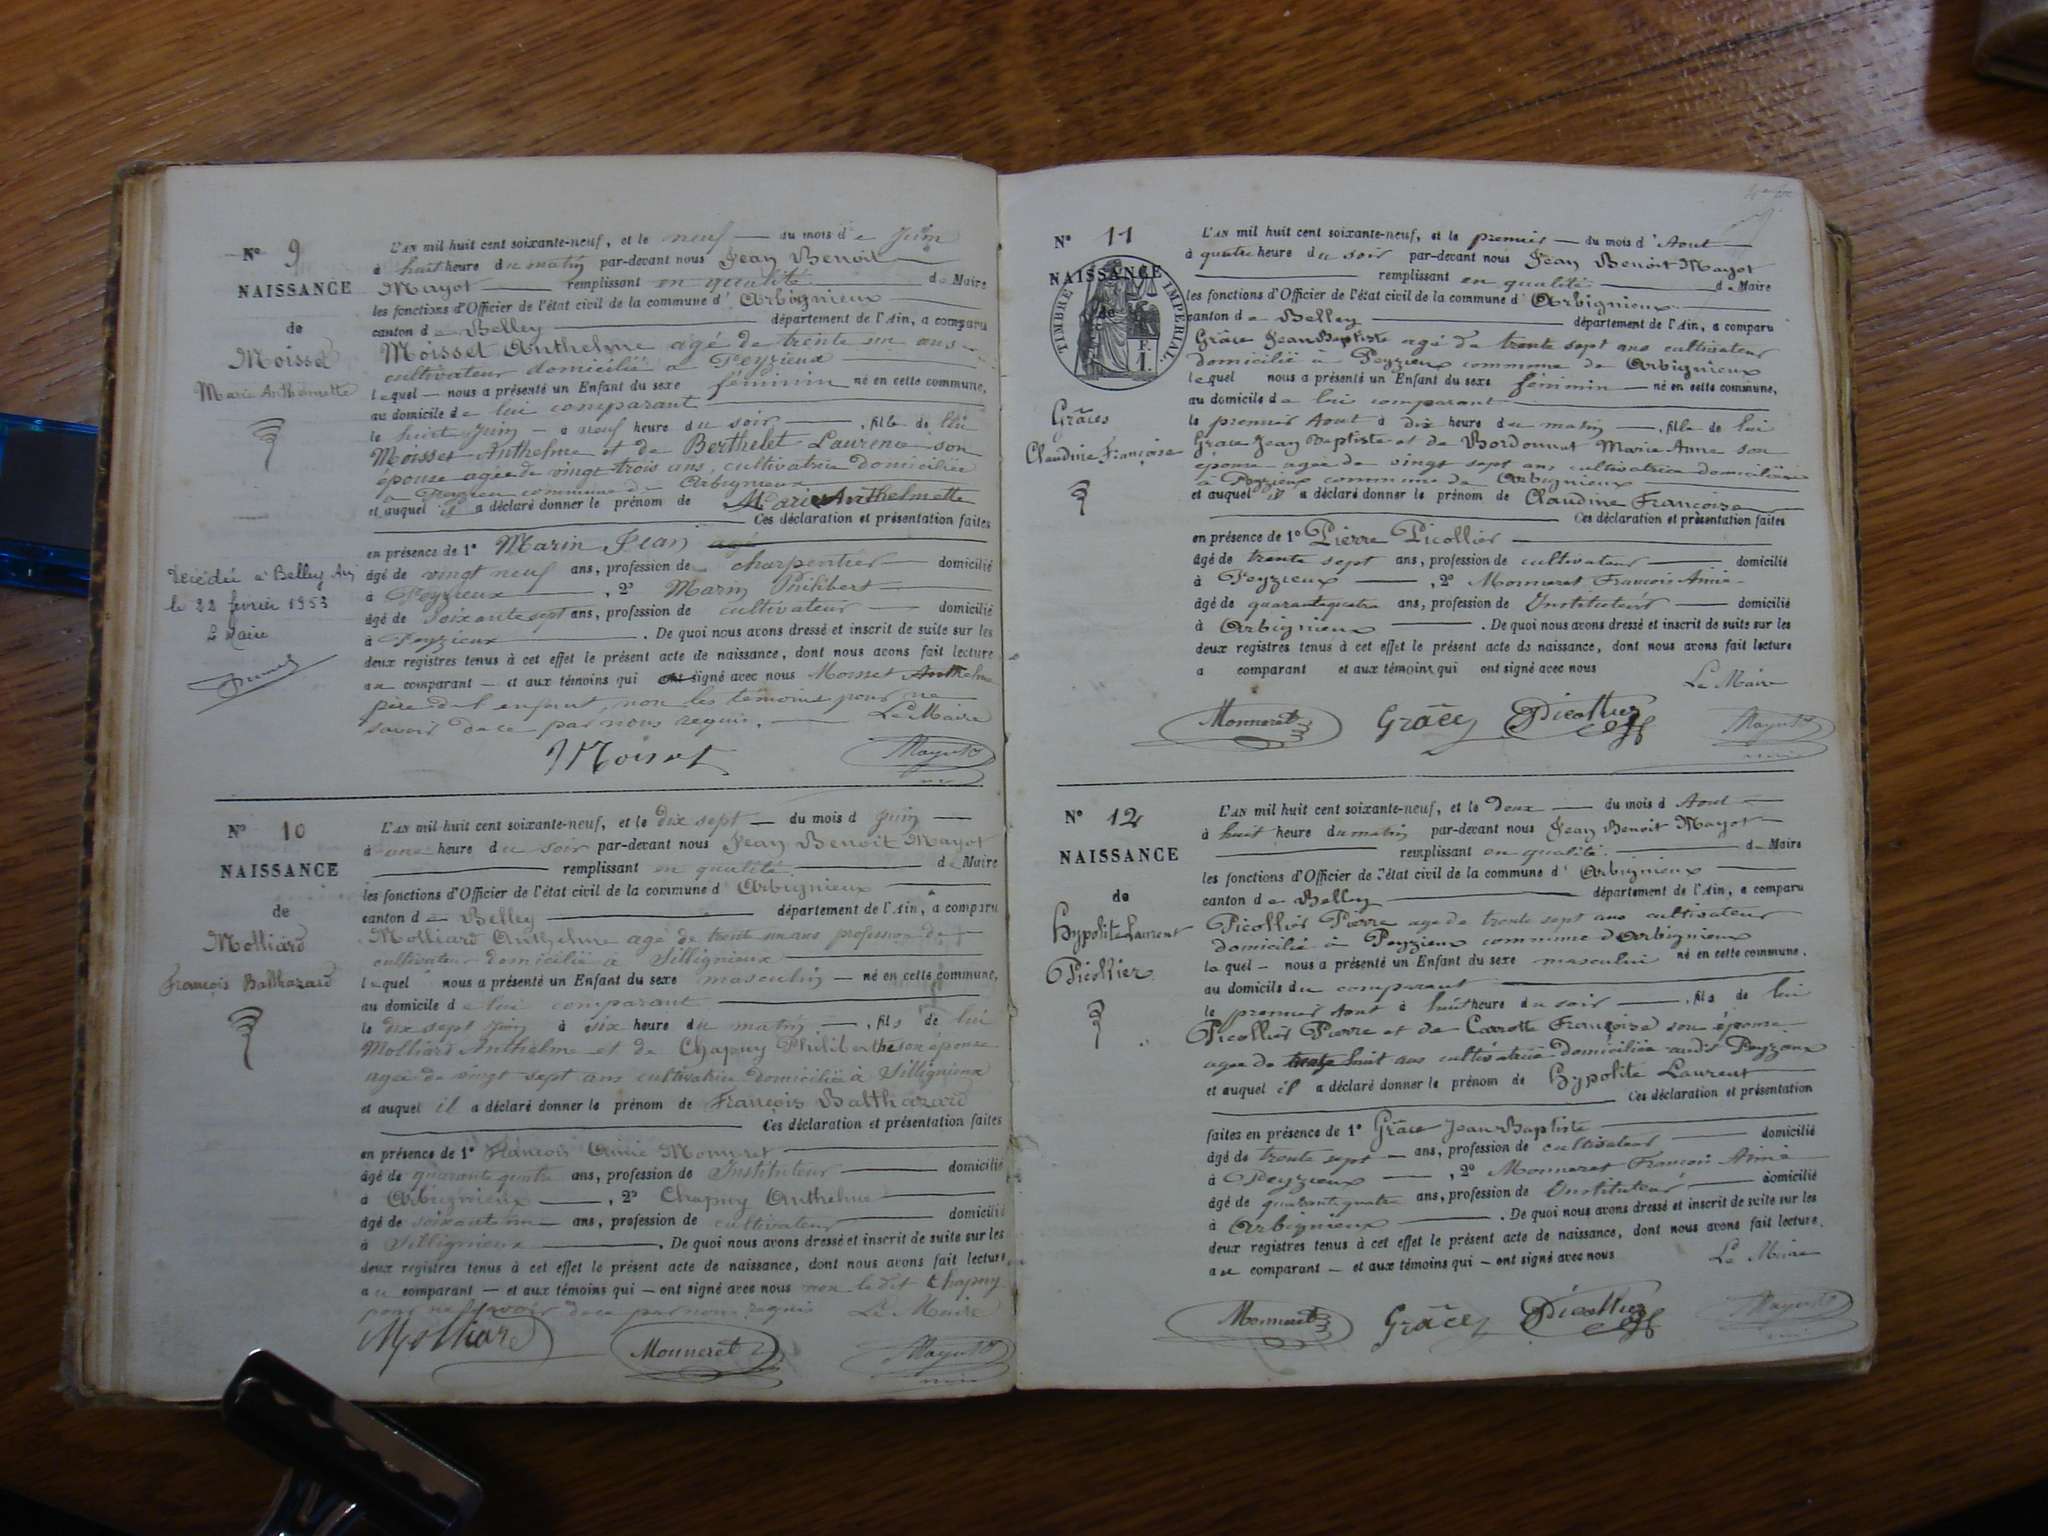 N° 9
NAISSANCE
de
Moisset
Marie Anthelmette
L'AN mil huit cent soixante-neuf, et le neuf — du mois de Juin
à huit heure du matin par-devant nous Jean Benoit
Mayot — remplissant en qualité — de Maire
les fonctions d'Officier de l'état civil de la commune d'Arbignieux
canton de Belley — département de l'Ain, a comparu
Moisset Anthelme agé de trente un ans
cultivateur domicilié à Peyzieux
lequel — nous a présenté un Enfant du sexe féminin né en cette commune,
au domicile de lui comparant
le huit Juin — à neuf heure du soir —, fille de lui
Moisset Anthelme et de Berthelet Laurence son
épouse agée de vingt trois ans, cultivatrice domiciliée
à Peyzieu commune de Arbignieux
et auquel il a déclaré donner le prénom de Marie Anthelmette
Ces déclaration et présentation faites
en présence de 1° Marin Jean agé
âgé de vingt neuf ans, profession de charpentier — domicilié
à Peyzieux —, 2° Marin Philibert
âgé de soixante sept ans, profession de cultivateur — domicilié
à Peyzieux — . De quoi nous avons dressé et inscrit de suite sur les
deux registres tenus à cet effet le présent acte de naissance, dont nous avons fait lecture
au comparant — et aux témoins qui ont signé avec nous Moisset Anthelme
père de l'enfant, non les témoins pour ne
savoir de ce par nous requis. — Le Maire
Moisset Mayot
Décédée à Belley Ain
le 22 février 1953
Le Maire
N° 10
NAISSANCE
de
Molliard
François Balthazard
L'AN mil huit cent soixante-neuf, et le dix sept — du mois d Juin —
à une heure du soir par-devant nous Jean Benoit Mayot
remplissant en qualité — de Maire
les fonctions d'Officier de l'état civil de la commune d'Arbignieux
canton de Belley — département de l'Ain, a comparu
Molliard Anthelme agé de trente un ans profession de
cultivateur domicilié à Sillignieux
lequel nous a présenté un Enfant du sexe masculin — né en cette commune,
au domicile de lui comparant
le dix sept Juin à six heure du matin —, fils de lui
Molliard Anthelme et de Chapuy Philiberthe son épouse
agée de vingt sept ans cultivatrice domiciliée à Sillignieux
et auquel il a déclaré donner le prénom de François Balthazard
Ces déclaration et présentation faites
en présence de 1° François Aimé Monneret
âgé de quarante quatre ans, profession de Instituteur — domicilié
à Arbignieux —, 2° Chapuy Anthelme
âgé de soixante un ans, profession de cultivateur — domicilié
à Sillignieux — . De quoi nous avons dressé et inscrit de suite sur les
deux registres tenus à cet effet le présent acte de naissance, dont nous avons fait lecture
au comparant — et aux témoins qui — ont signé avec nous non le dit Chapuy
pour ne savoir de ce par nous requis Le Maire
Molliard Monneret Mayot
N° 11
NAISSANCE
de
TIMBRE IMPERIAL
F.
1.
Grâces
Claudine Françoise
L'AN mil huit cent soixante-neuf, et le premier — du mois d'Aout
à quatre heure du soir par-devant nous Jean Benoit Mayot
remplissant en qualité — de Maire
les fonctions d'Officier de l'état civil de la commune d'Arbignieux
canton de Belley — département de l'Ain, a comparu
Grâce Jean Baptiste agé de trente sept ans cultivateur
domicilié à Peyzieux commune de Arbignieux
lequel nous a présenté un Enfant du sexe féminin — né en cette commune,
au domicile de lui comparant
le premier Aout à dix heure du matin —, fille de lui
Grâce Jean Baptiste et de Bordonnat Marie Anne son
épouse agée de vingt sept ans cultivatrice domiciliée
à Peyzieux commune de Arbignieux
et auquel il a déclaré donner le prénom de Claudine Françoise
Ces déclaration et présentation faites
en présence de 1° Pierre Picollier
âgé de trente sept ans, profession de cultivateur — domicilié
à Peyzieux —, 2° Monneret François Aimé
âgé de quarante quatre ans, profession de Instituteur — domicilié
à Arbignieux — . De quoi nous avons dressé et inscrit de suite sur les
deux registres tenus à cet effet le présent acte de naissance, dont nous avons fait lecture
a comparant et aux témoins qui ont signé avec nous
Le Maire
Monneret Grâce Picollier Mayot
N° 12
NAISSANCE
de
Hypolite Laurent
Picollier
L'AN mil huit cent soixante-neuf, et le deux — du mois d Aout
à huit heure du matin par-devant nous Jean Benoit Mayot
remplissant en qualité — de Maire
les fonctions d'Officier de l'état civil de la commune d'Arbignieux
canton de Belley — département de l'Ain, a comparu
Picollier Pierre agé de trente sept ans cultivateur
domicilié à Peyzieux commune d'Arbignieux
lequel — nous a présenté un Enfant du sexe masculin né en cette commune,
au domicile du comparant
le premier Aout à huit heure du soir —, fils de lui
Picollier Pierre et de Carrotte Françoise son épouse
agée de trente huit ans cultivatrice domiciliée audit Peyzieux
et auquel il a déclaré donner le prénom de Hypolite Laurent
Ces déclaration et présentation
faites en présence de 1° Grâce Jean Baptiste
âgé de trente sept — ans, profession de cultivateur — domicilié
à Peyzieux —, 2° Monneret François Aimé
âgé de quarante quatre ans, profession de Instituteur — domicilié
à Arbignieux — . De quoi nous avons dressé et inscrit de suite sur les
deux registres tenus à cet effet le présent acte de naissance, dont nous avons fait lecture.
au comparant — et aux témoins qui — ont signé avec nous
Le Maire
Monneret Grâce Picollier Mayot